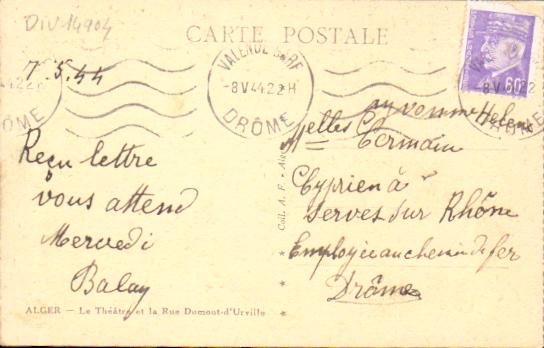 DIV-14904
CARTE POSTALE
7.5.44
VALENCE GARE
-8 V 44 22 H
DRÔME
60
Reçu lettre
vous attend
Mercredi
Balay
yvonne Helene
Melles Germain
Cyprien à
Serves sur Rhône
Employée au chemin de fer
Drôme
Coll. A. F. - Alger
ALGER — Le Théâtre et la Rue Dumont-d'Urville